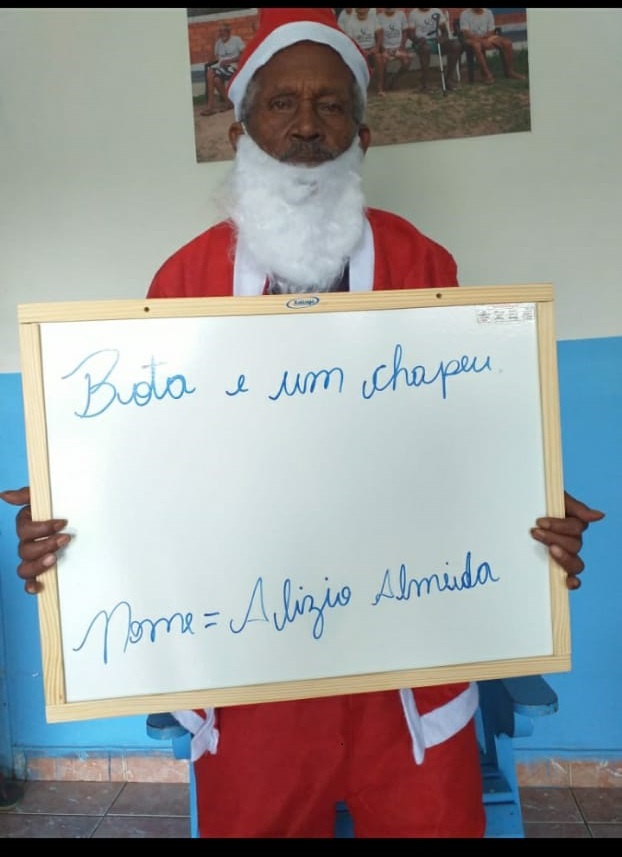 Bota e um chapeu.
Nome = Alizio Almeida